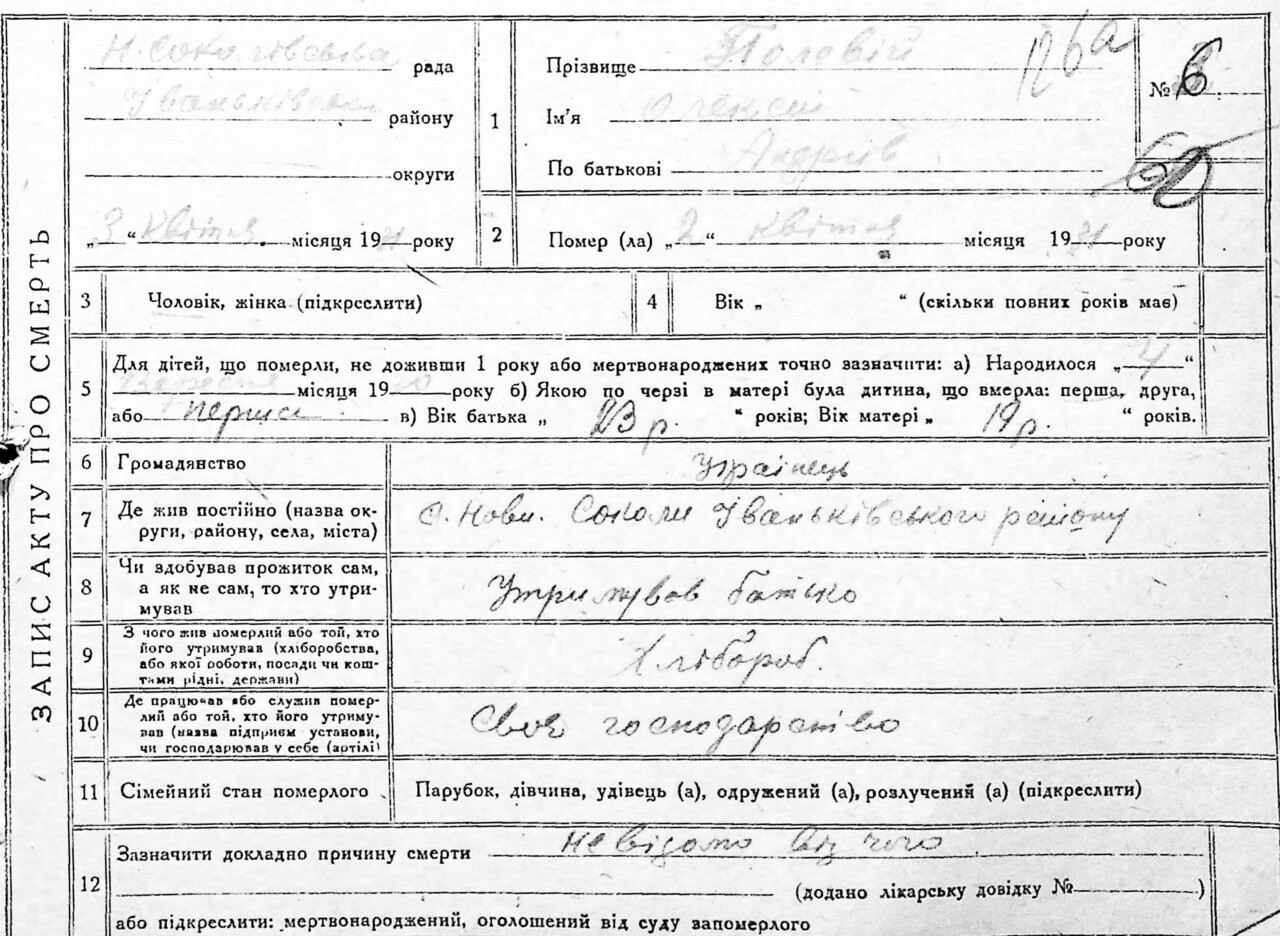 ЗАПИС АКТУ ПРО СМЕРТЬ
Н. Соколівська рада
Іваньківськ району
округи
„3“ Квітня місяця 1931 року
1
Прізвище Полевій
Ім'я Олексій
По батькові Андріїв
126а
№ 6
60
2 Помер (ла) „2“ квітня місяця 1931 року
3 Чоловік, жінка (підкреслити)
4 Вік „ “ (скільки повних років мав)
5 Для дітей, що померли, не доживши 1 року або мертвонароджених точно зазначити: а) Народилося „4“
Вересня місяця 19 року б) Якою по черзі в матері була дитина, що вмерла: перша, друга,
або перша в) Вік батька „ 23 р. “ років; Вік матері „ 19 р. “ років.
6 Громадянство Українець
7 Де жив постійно (назва ок-
руги, району, села, міста)
с. Нові. Соколи Іваньківського району
8 Чи здобував прожиток сам,
а як не сам, то хто утри-
мував
Утримував батько
9 З чого жив померлий або той, хто
його утримував (хліборобства,
або якої роботи, посади чи кош-
тами рідні, держави)
Хлібороб.
10 Де працював або служив помер-
лий або той, хто його утриму-
вав (назва підприєм установи,
чи господарював у себе (артілі)
Своє господарство
11 Сімейний стан померлого Парубок, дівчина, удівець (а), одружений (а), розлучений (а) (підкреслити)
12 Зазначити докладно причину смерти невідомо від чого
(додано лікарську довідку № )
або підкреслити: мертвонароджений, оголошений від суду запомерлого